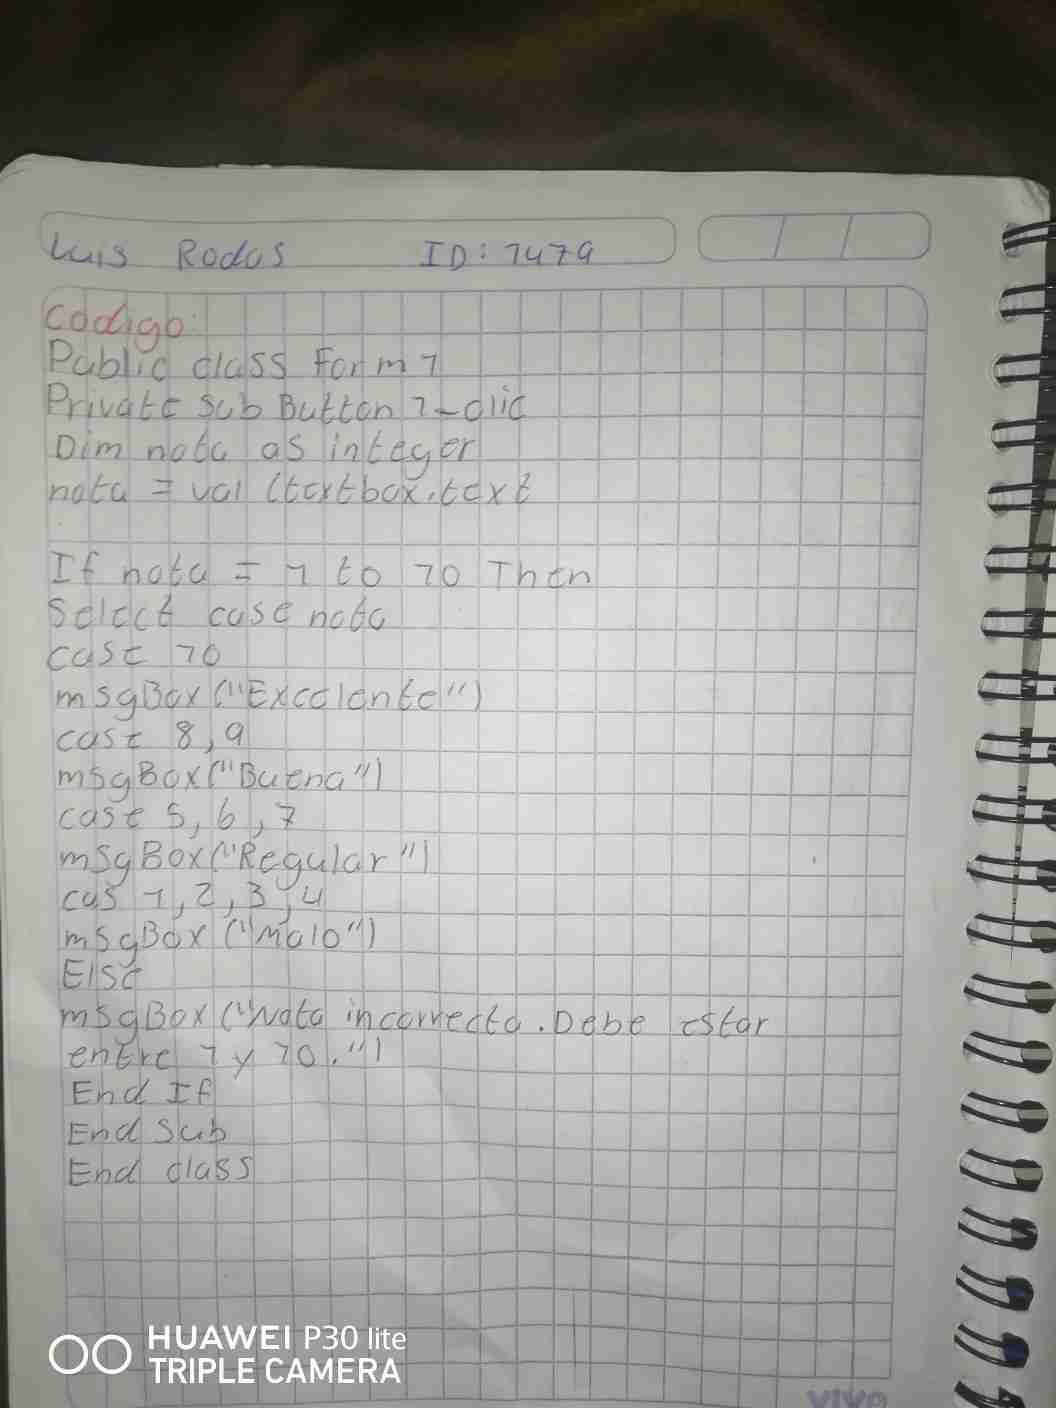 Luis Rodas ID: 1479
Codigo:
Public class Form 1
Private Sub Button 1-clic
Dim nota as integer
nota = val (textbox.text
If nota = 1 to 10 Then
Select case nota
case 10
msgBox ("Excelente")
case 8, 9
msgBox ("Buena")
case 5, 6, 7
msgBox ("Regular")
cas 1, 2, 3, 4
msgBox ("Malo")
Else
msgBox ("Nota incorrecta. Debe estar
entre 1 y 10.")
End If
End Sub
End class
HUAWEI P30 lite
TRIPLE CAMERA